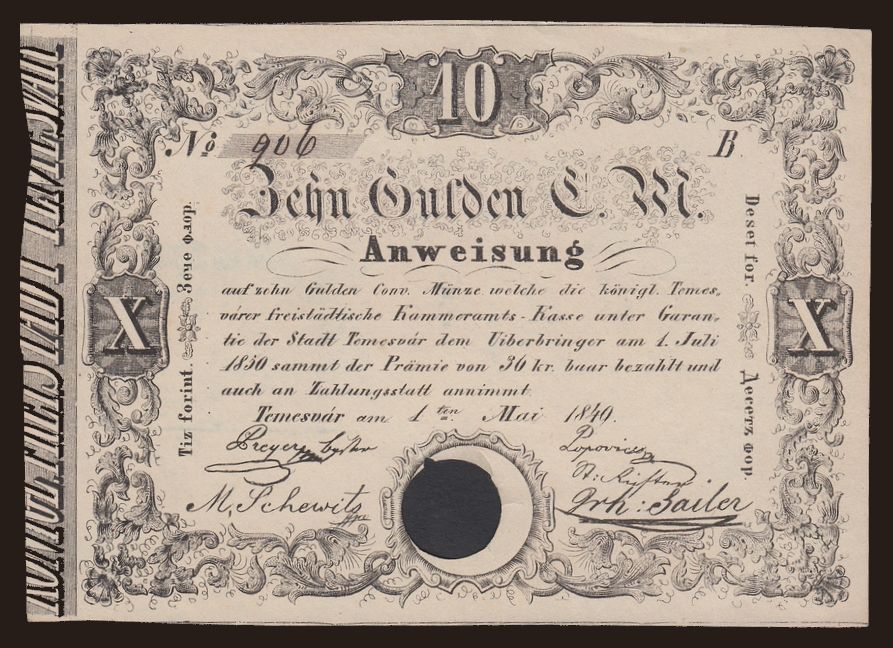 10
No 906 B
Zehn Gulden C. M.
Anweisung
auf zehn Gulden Conv. Münze welche die königl. Temes„
várer freistädtische Kammeramts-Kasse unter Garan„
tie der Stadt Temesvár dem Uiberbringer am 1. Juli
1850 sammt der Prämie von 30 kr. baar bezahlt und
auch an Zahlungsstatt annimmt.
Temesvár am 1ten Mai 1840.
Tiz forint. Зече флор.
X
Deset for. Десетъ фор.
X
Preyer
Popovics
M. Schewitz
Joh: Sailer